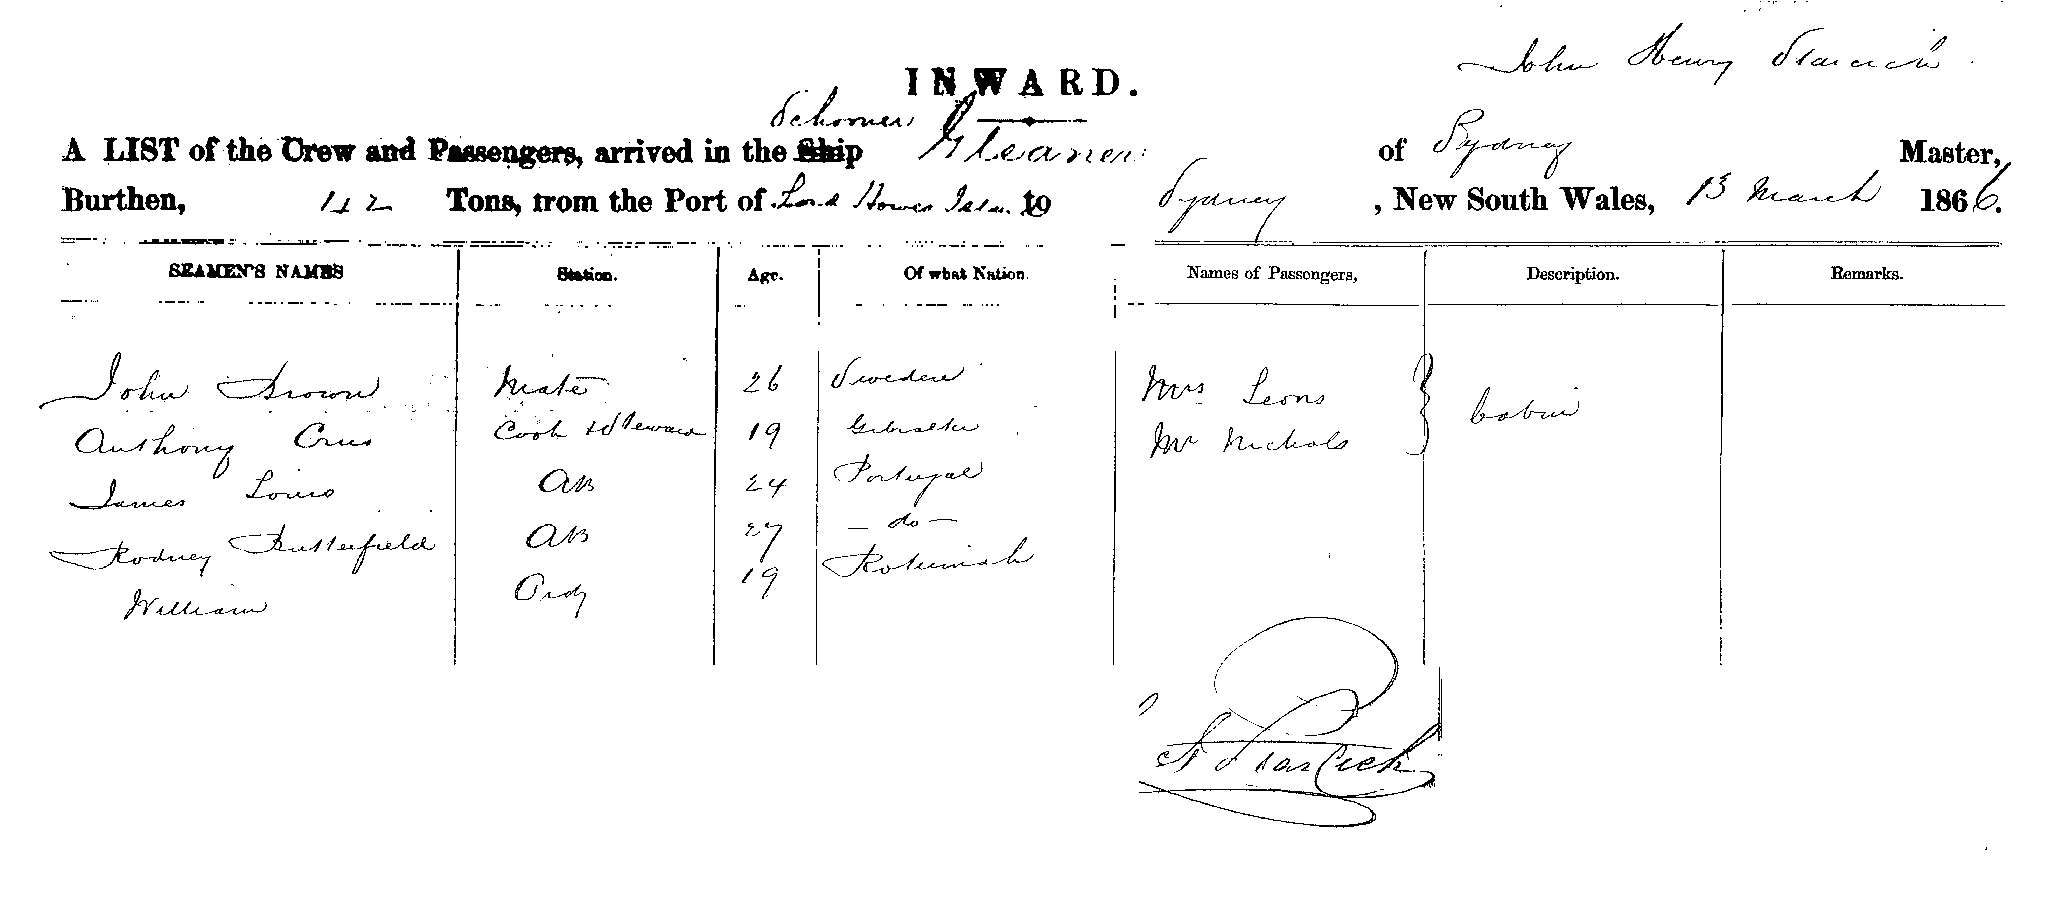 John Henry
INWARD.
Schooner
A LIST of the Crew and Passengers, arrived in the Ship Gleaner of Sydney Master,
Burthen, 42 Tons, from the Port of Lord Howes Islan to Sydney, New South Wales, 13 March 1866.
SEAMEN'S NAMES Station. Age. Of what Nation. Names of Passengers, Description. Remarks.
John Brown Mate 26 Sweden Mrs Leons Cabin
Anthony Crus Cook & Steward 19 Gibralter Mr Nichols
James Louis AB 24 Portugal
Rodney Butterfield AB 27 - do -
William Ordy 19 Rotumah